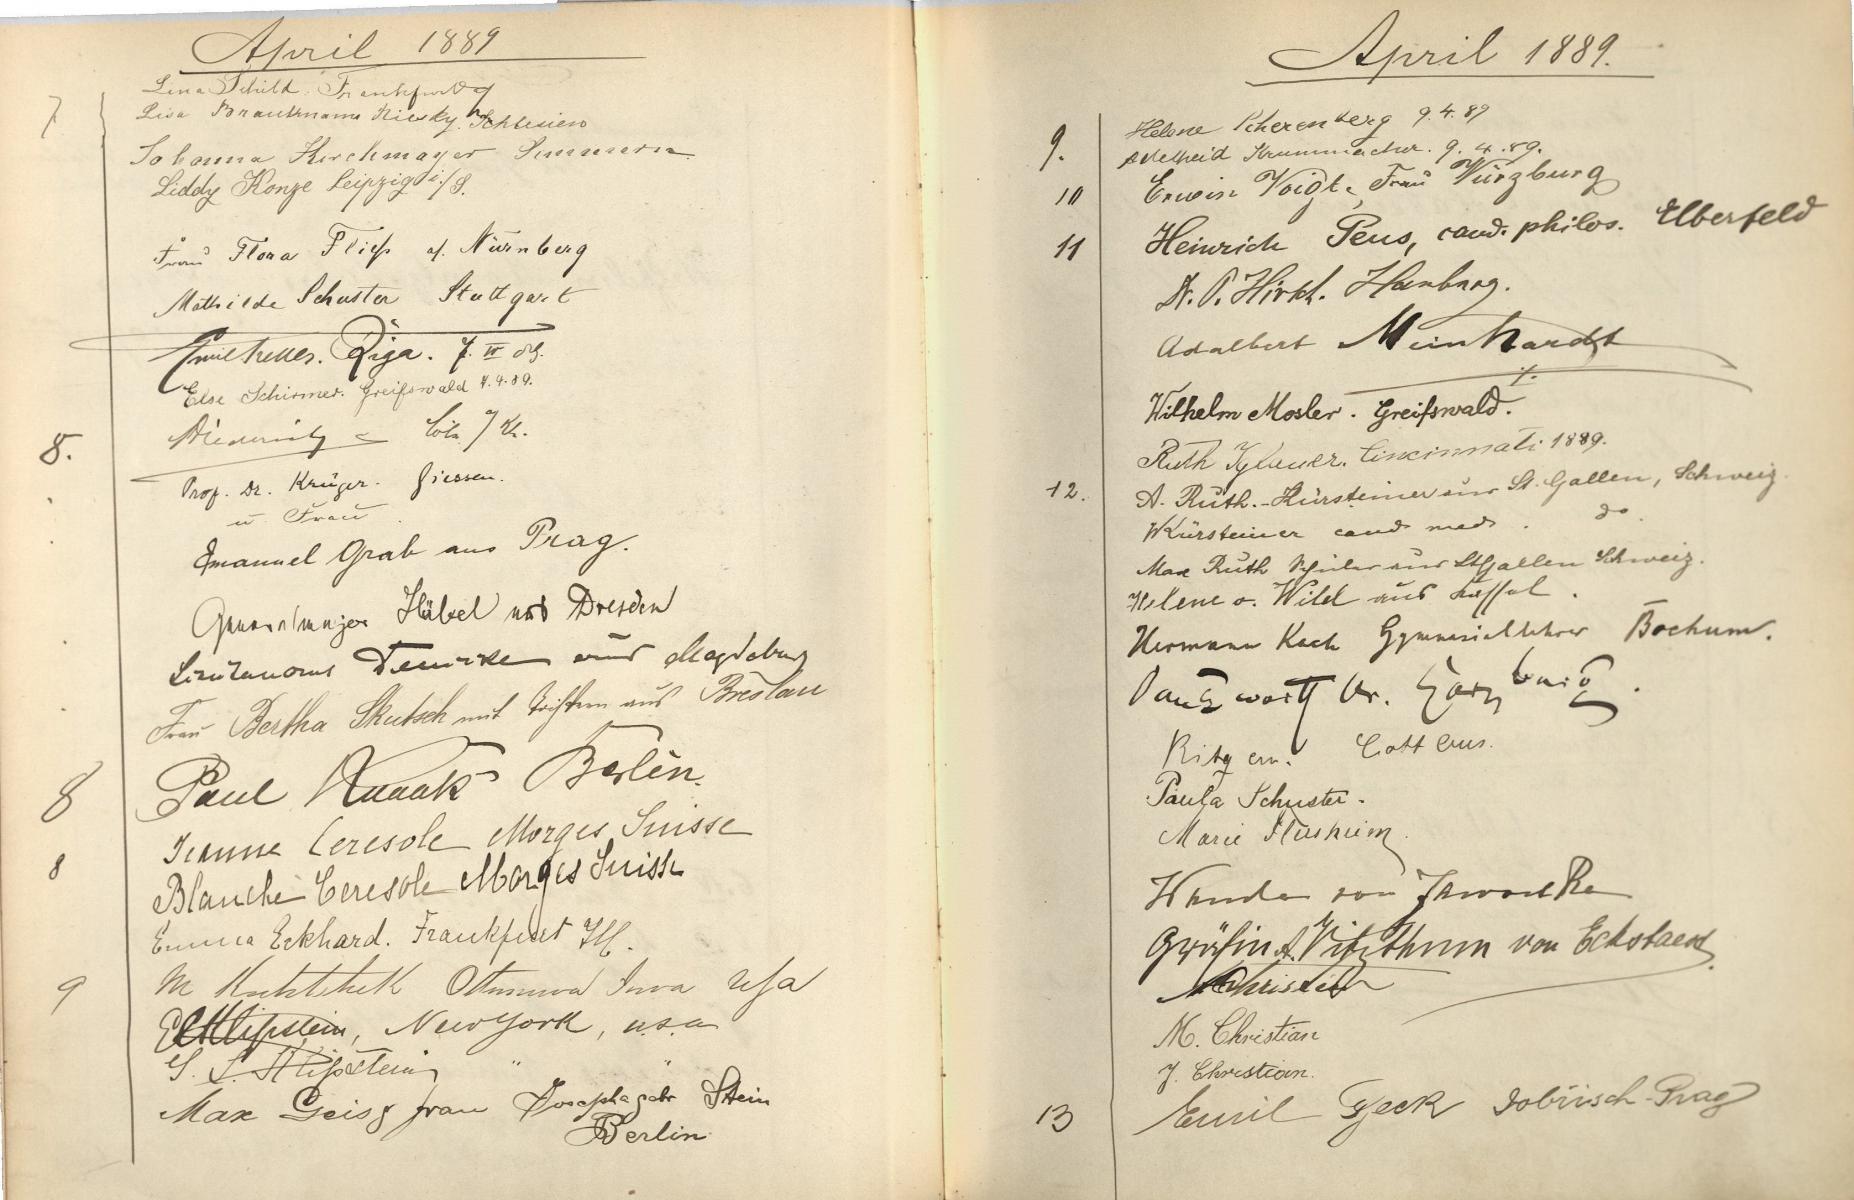 April 1889
7
Lina Schild. Frankfurt
Lisa Niesky Schlesien
Johanna Kirchmayer Simmern
Liddy Konze Leipzig i/S.
Frau Flora Fließ a. Nürnberg
Mathilde Schuster Stuttgart
Riga. 7. IV 89.
Else Schirmer. Greifswald 7.4.89.
8.
Prof. Dr. Krüger. Giessen.
u. Frau
Emanuel Grab aus Prag.
Generalmajor Hübel aus Dresden
aus Magdeburg
Frau Bertha Skutsch mit aus Breslau
8
Paul Knaak Berlin.
Jeanne Ceresole Morges Suisse
8
Blanche Ceresole Morges Suisse
Emma Eckhard. Frankfurt
9
M Ottumwa Iowa USA
Klipstein, New York, U.S.A
G. L. Klipstein " "
Max Geisz Frau Josepha geb Stein
Berlin
April 1889.
9.
Helene Scherenberg 9.4.89
Adelheid Krummacher. 9.4.89.
10
Erwin Voigt, Frau Würzburg
11
Heinrich Peus, cand. philos. Elberfeld
Dr. P. Hirsch. Hamburg.
Adalbert Meinhardt
Wilhelm Mosler. Greifswald.
Ruth Cincinnati 1889.
12.
A. Ruth-Kürsteiner aus St. Gallen, Schweiz.
W Kürsteiner cand med. do.
Max Ruth Schüler aus St Gallen Schweiz.
Helene v. Wild aus Kassel.
Hermann Koch Gymnasiallehrer Bochum.
Dr. Harzburg.
Cottbus.
Paula Schuster.
Marie Flusheim.
Wanda von
Gräfin A. Vitzthum von Eckstaedt
Christian
M. Christian
J. Christian.
13
Emil Gjeck Dobrisch-Prag